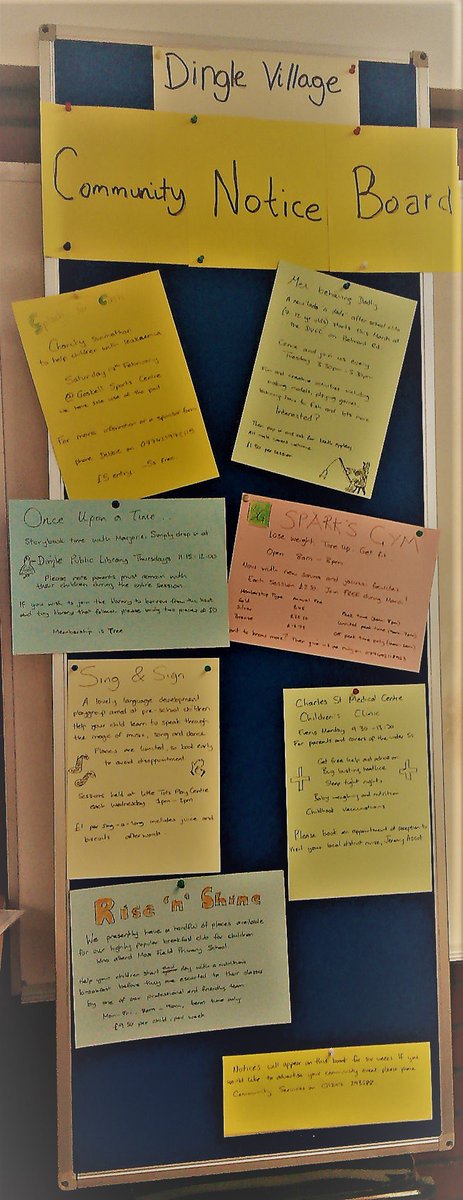 Dingle Village
Community Notice Board
Charity swimathon
to help children with leukaemia
Saturday February
@ Gaskell Sports Centre
we have sole use of the pool
For more information or a sponsor form
phone Debbie on
£5 entry Free
Men behaving Dadly
A new 'lads & dads' after school club
(7-12 yr olds) starts this March at
the on Belvoird Rd.
Come and join us every
Tuesday 3.30pm - 5.30pm
Fun and creative activities including
making models, playing games
learning how to fish and lots more
Interested?
Then pop in and ask for
All male carers welcome
£1.50 per session
Once Upon a Time...
Storybook time with Marjorie. Simply drop in at
Dingle Public Library Thursdays 11.15-12.00
Please note parents must remain with
their children during the entire session.
If you wish to join the library to borrow from this
and toy library that follows, please bring two pieces of ID
Membership is Free
SPARK'S GYM
Lose weight. Tone up. Get fit
Open 8am - 8pm
Now with new sauna and
Each Session £3.50. Join FREE during March!
Membership Type Annual Fee
Gold
Silver
Bronze
Peak time
Limited peak time
Off peak time only
want to know more? Then give us a ring on
Sing & Sign
A lovely language development
playgroup aimed at pre-school children
Help your child learn to speak through
the magic of music, song and dance
Places are limited, so book early
to avoid disappointment
Sessions held at Little Tots Play Centre
each Wednesday 1pm - 3pm
£1 per sing-a-long includes juice and
biscuits afterwards
Charles St Medical Centre
Children's Clinic
Every Monday 9.30 - 13.30
For parents and carers of the under 5s
Get free help and advice on
Bug busting headlice
Sleep tight nights
Baby weighing and nutrition
Childhood vaccinations
Please book an appointment at reception to
visit your local district nurse, Jeremy
Rise 'n' Shine
We presently have a handful of places available
for our highly popular breakfast club for children
who attend Moss Field Primary School.
Help your children start day with a nutritious
breakfast before they are escorted to their classes
by one of our professional and friendly team
Mon-Fri, 8am - 9am, term time only
£9.50 per child, per week
Notices will appear on this board for six weeks. If you
would like to advertise your community event please phone
Community Services on